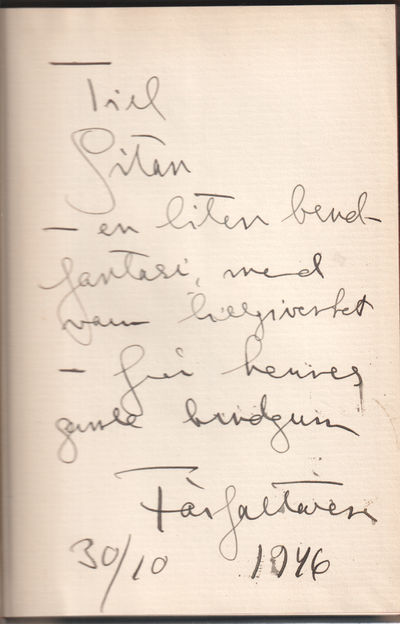 Till
Gitan
– en liten brud-
fantasi, med
varm tillgivenhet
– från hennes
gamle brudgum
Författaren
30/10 1946